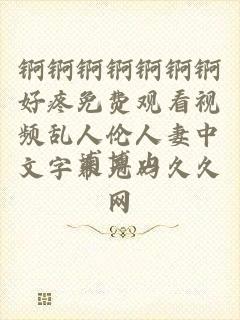 锕锕锕锕锕锕锕
好疼免费观看视
频乱人伦人妻中
文字幕
久久
网